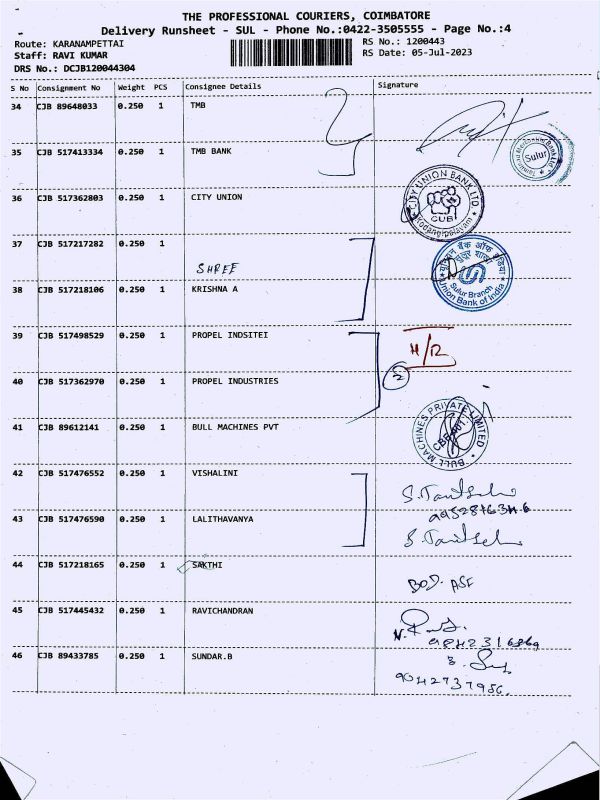 THE PROFESSIONAL COURIERS, COIMBATORE
Delivery Runsheet - SUL - Phone No.:0422-3505555 - Page No.:4
Route: KARANAMPETTAI
RS No.: 1200443
Staff: RAVI KUMAR
RS Date: 05-Jul-2023
DRS No.: DCJB120044304
S No Consignment No Weight PCS Consignee Details Signature
34 CJB 89648033 0.250 1 TMB
Tamilnad Mercantile Bank Ltd
Sulur
35 CJB 517413334 0.250 1 TMB BANK
36 CJB 517362803 0.250 1 CITY UNION
CITY UNION BANK LTD.
CUB
37 CJB 517217282 0.250 1
यूनियन बैंक ऑफ इंडिया
SHREE
38 CJB 517218106 0.250 1 KRISHNA A
Sulur Branch
Union Bank of India
39 CJB 517498529 0.250 1 PROPEL INDSITEI
H/R
2
40 CJB 517362970 0.250 1 PROPEL INDUSTRIES
41 CJB 89612141 0.250 1 BULL MACHINES PVT
BULL MACHINES PRIVATE LIMITED
42 CJB 517476552 0.250 1 VISHALINI
43 CJB 517476590 0.250 1 LALITHAVANYA
44 CJB 517218165 0.250 1 SAKTHI
45 CJB 517445432 0.250 1 RAVICHANDRAN
46 CJB 89433785 0.250 1 SUNDAR.B
9042737956.